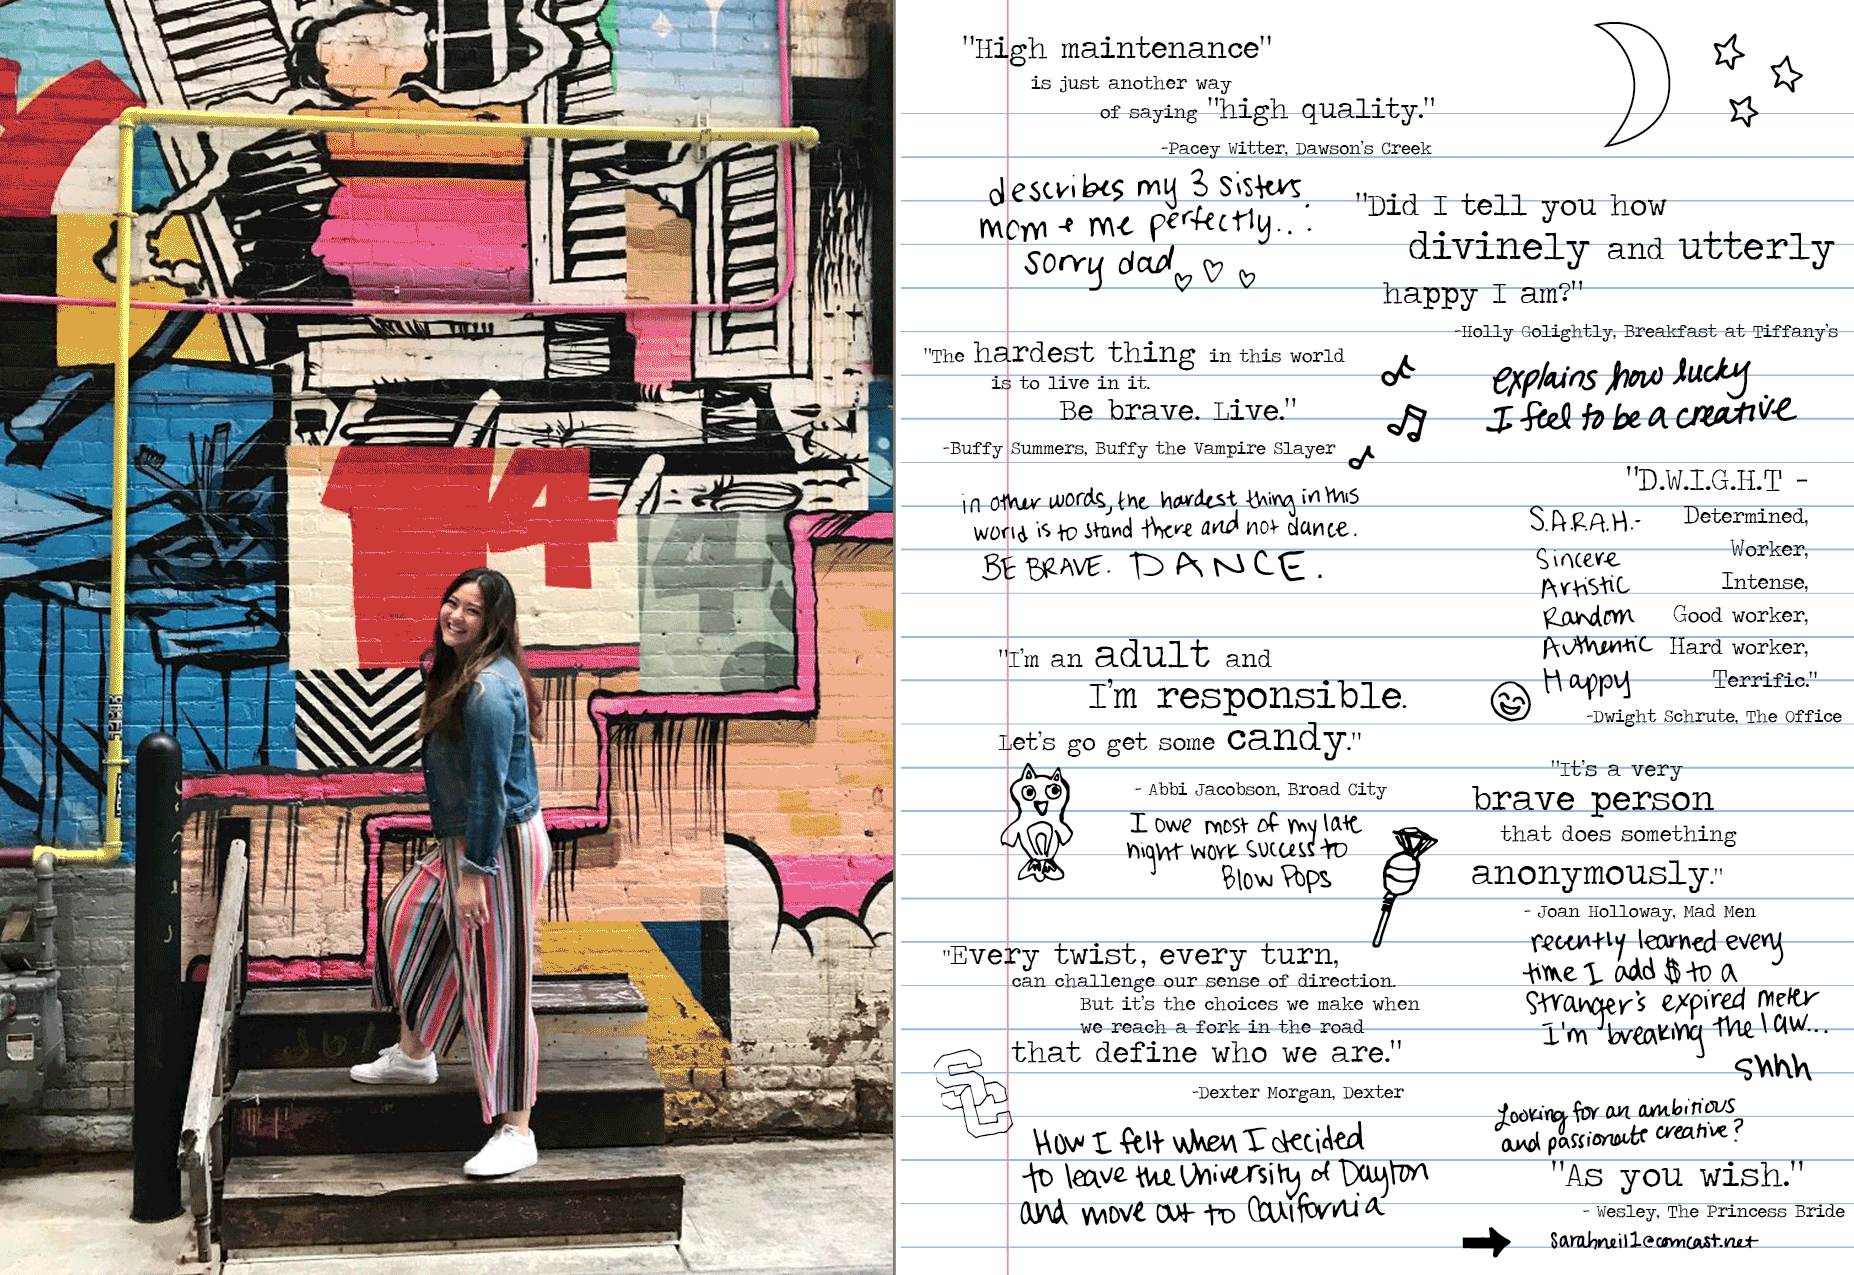 14
"High maintenance"
is just another way
of saying "high quality."
-Pacey Witter, Dawson's Creek
describes my 3 sisters,
mom + me perfectly...
sorry dad
"Did I tell you how
divinely and utterly
happy I am?"
-Holly Golightly, Breakfast at Tiffany's
explains how lucky
I feel to be a creative
"The hardest thing in this world
is to live in it.
Be brave. Live."
-Buffy Summers, Buffy the Vampire Slayer
in other words, the hardest thing in this
world is to stand there and not dance.
BE BRAVE. DANCE.
"D.W.I.G.H.T -
Determined,
Worker,
Intense,
Good worker,
Hard worker,
Terrific."
-Dwight Schrute, The Office
S.A.R.A.H.-
Sincere
Artistic
Random
Authentic
Happy
"I'm an adult and
I'm responsible.
Let's go get some candy."
- Abbi Jacobson, Broad City
I owe most of my late
night work success to
Blow Pops
"It's a very
brave person
that does something
anonymously."
- Joan Holloway, Mad Men
recently learned every
time I add $ to a
stranger's expired meter
I'm breaking the law...
shhh
"Every twist, every turn,
can challenge our sense of direction.
But it's the choices we make when
we reach a fork in the road
that define who we are."
-Dexter Morgan, Dexter
SC
How I felt when I decided
to leave the University of Dayton
and move out to California
Looking for an ambitious
and passionate creative?
"As you wish."
- Wesley, The Princess Bride
sarahneil1@comcast.net